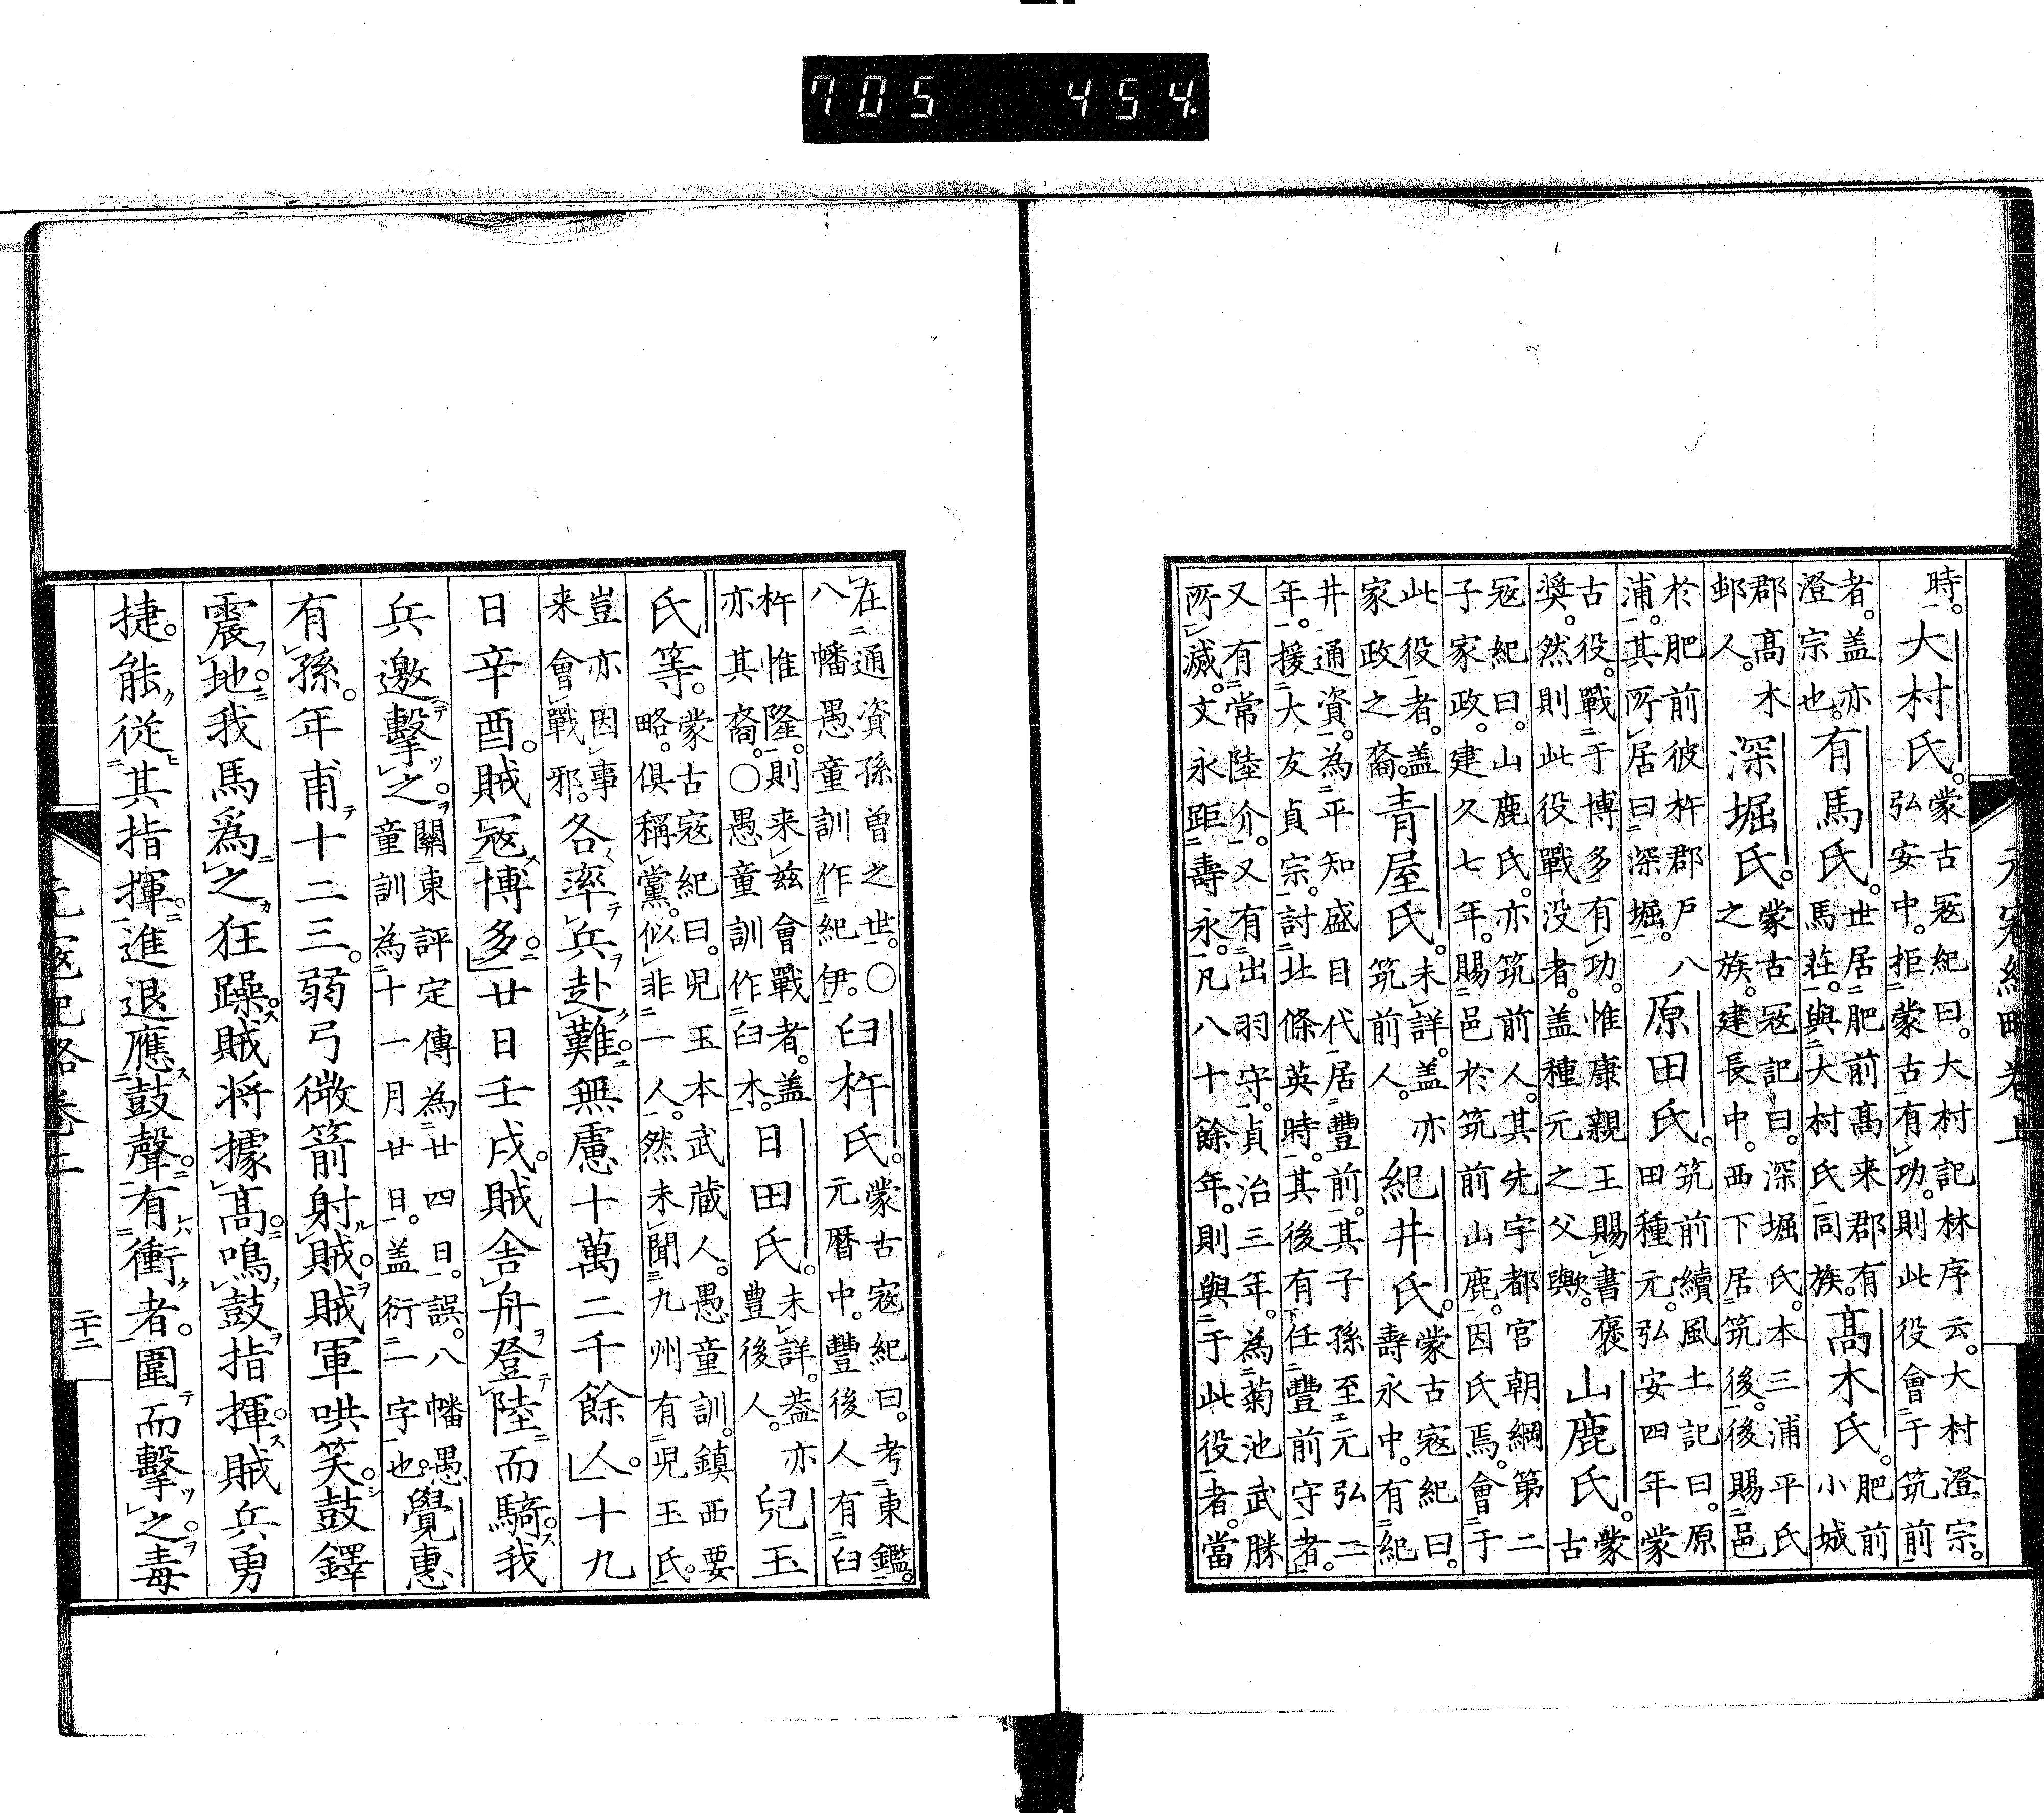 705 454.
時。大村氏。蒙古寇紀曰。大村記林序云。大村澄宗。
弘安中。拒蒙古有功。則此役會于筑前
者。盖亦有馬氏。世居肥前高来郡有高木氏。肥前
澄宗也。馬莊。與大村氏同族。小城
郡高木深堀氏。蒙古寇記曰。深堀氏。本三浦平氏
邨人。之族。建長中。西下居筑後。後賜邑
於肥前彼杵郡戸八原田氏。筑前續風土記曰。原
浦。其所居曰深堀。田種元。弘安四年蒙
古役。戰于博多有功。惟康親王賜書褒山鹿氏。蒙
奨。然則此役戰没者。盖種元之父歟。古
寇紀曰。山鹿氏。亦筑前人。其先宇都宮朝綱第二
子家政。建久七年。賜邑於筑前山鹿。因氏焉。會于
此役者。盖青屋氏。未詳。盖亦紀井氏。蒙古寇紀曰。
家政之裔。筑前人。壽永中。有紀
井通資。為平知盛目代居豐前。其子孫至元弘二
年。援大友貞宗。討北條英時。其後有任豐前守者。
又有常陸介。又有出羽守。貞治三年。為菊池武勝
所滅。文永距壽永。凡八十餘年。則與于此役者。當
元寇紀略卷上
在通資孫曽之世。〇臼杵氏。蒙古寇紀曰。考東鑑。
八幡愚童訓作紀伊。元暦中。豐後人有臼
杵惟隆。則来茲會戰者。盖日田氏。未詳。葢亦兒玉
亦其裔。〇愚童訓作臼木。豊後人。
氏等。蒙古寇紀曰。児玉本武藏人。愚童訓。鎮西要
略。俱稱黨。似非一人。然未聞九州有児玉氏。
豈亦因事各率兵赴難。無慮十萬二千餘人。十九
来會戰邪。
日辛酉。賊寇博多。廿日壬戌。賊舎舟登陸而騎。我
兵邀擊之。關東評定傳為廿四日。誤。八幡愚覺惠
童訓為十一月廿日。盖衍一字也。
有孫。年甫十二三。弱弓微箭射賊。賊軍哄笑。鼓鐸
震地。我馬爲之狂躁。賊将據高鳴鼓指揮。賊兵勇
捷。能従其指揮。進退應鼓聲。有衝者。圍而擊之。毒
元寇紀略卷上
二十二